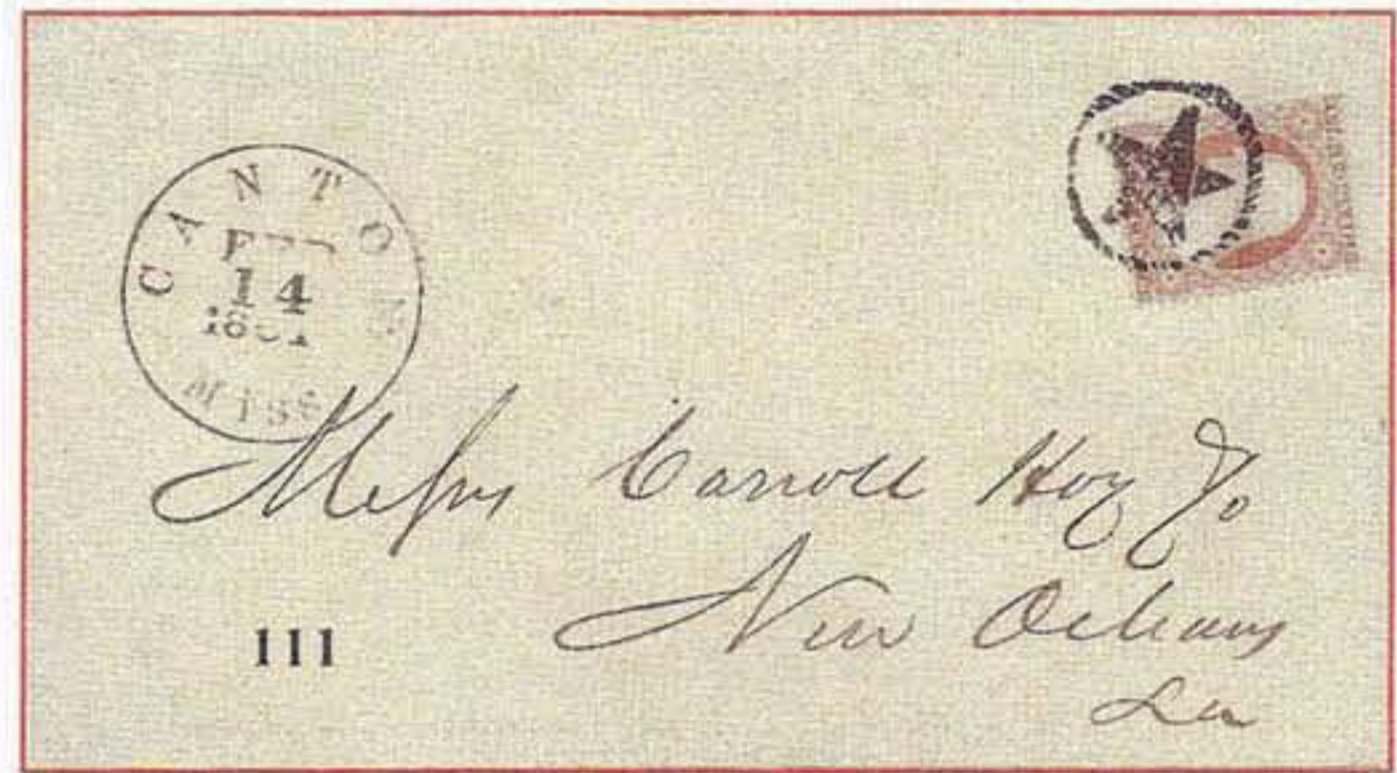 CANTON
14
MISS
Messrs Carroll Hoy & Co
New Orleans
La
111